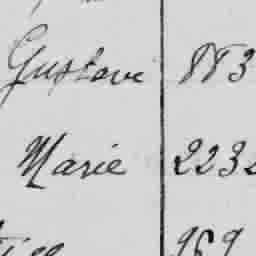 Gustave 883
Marie 223
969